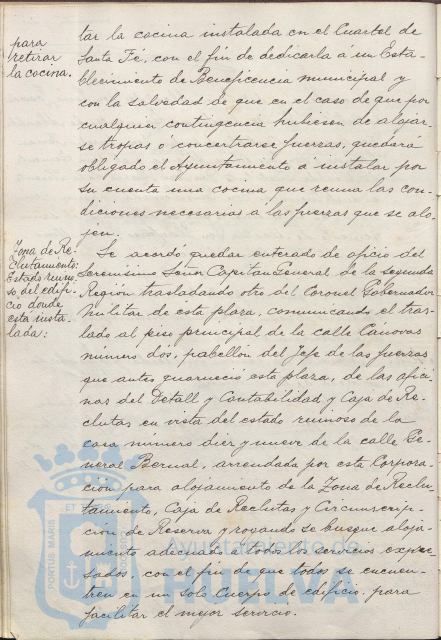 para
retirar
la cocina.
tar la cocina instalada en el Cuartel de
Santa Fé, con el fin de dedicarla á un Esta-
blecimiento de Beneficencia municipal y
con la salvedad de que en el caso de que por
cualquier contingencia hubiesen de alojar-
se tropas o concertrarse fuerzas, quedara
obligado el Ayuntamiento á instalar por
su cuenta una cocina que reuna las con-
diciones necesarias á las fuerzas que se alo-
jen.
Zona de Re-
clutamiento:
Estado ruino-
so del edifi-
cio donde
esta insta-
lada:
Se acordó quedar enterado de oficio del
Serenisimo Señor Capitan General de la segunda
Región trasladando otro del Coronel Gobernador
militar de esta plaza, comunicando el tras-
lado al piso principal de la calle Cánovas
número dos, pabellón del Jefe de las fuerzas
que antes guarneció esta plaza, de las ofici-
nas del Detall y Contabilidad y Caja de Re-
clutas en vista del estado ruinoso de la
casa número diez y nueve de la calle Ge-
neral Bernal, arrendada por esta Corpora-
ción para alojamiento de la Zona de Reclu-
tamiento, Caja de Reclutas y Circunscrip-
ción de Reserva y rogando se busque aloja-
miento adecuado a todos los servicios expre-
sados, con el fin de que todos se encuen-
tren en un solo Cuerpo de edificio para
facilitar el mejor servicio.
PORTUS MARIS ET
Ayuntamiento de
HUELVA